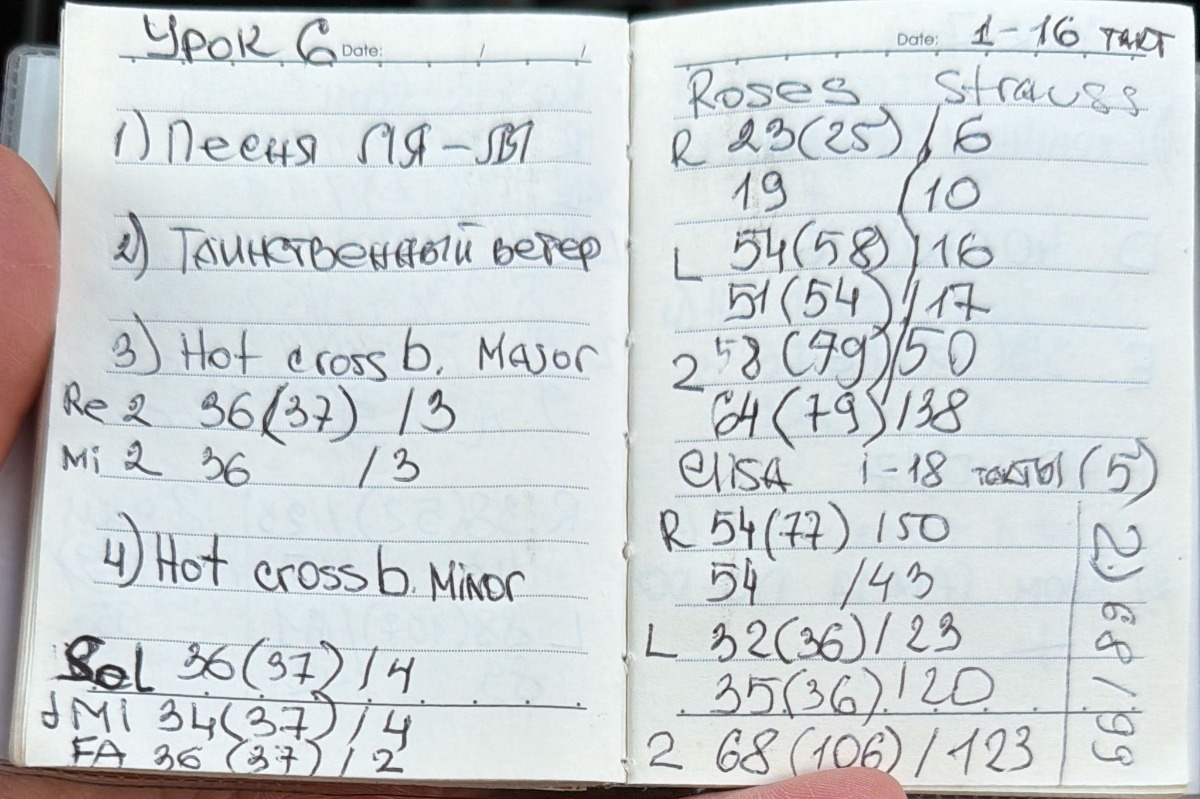 Урок 6 Date: / /
1) Песня ЛЯ-ЛЯ
2) Таинственный ветер
3) Hot cross b. Major
Re 2 36(37) /3
Mi 2 36 /3
4) Hot cross b. Minor
Sol 36(37) /4
Mi 34(37) /4
FA 36 (37) /2
Date: 1-16 такт
Roses Strauss
R 23(25) /6
19 /10
L 54(58) /16
51(54) /17
2 58(79) /50
64(79) /38
elisa 1-18 такты (5)
R 54(77) /50
54 /43
L 32(36) /23
35(36) /20
2 68(106) /123
2) 68/99